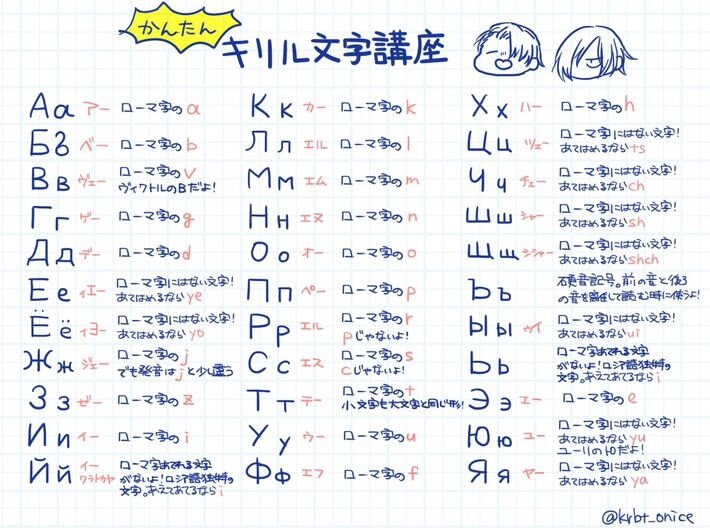 かんたん
キリル文字講座
Аа アー ローマ字のa
Бб ベー ローマ字のb
Вв ヴェー ローマ字のv
ヴィクトルのBだよ!
Гг ゲー ローマ字のg
Дд デー ローマ字のd
Ее イェー ローマ字にはない文字!
あてはめるならye
Ёё ィヨー ローマ字にはない文字!
あてはめるならyo
Жж ジェー ローマ字のj
でも発音はjと少し違う
Зз ゼー ローマ字のz
Ии イー ローマ字のi
Йй イー
クラトカヤ
ローマ字あてれる文字
がないよ!ロシア語独特の
文字。あえてあてるならi
Кк カー ローマ字のk
Лл エル ローマ字のl
Мм エム ローマ字のm
Нн エヌ ローマ字のn
Оо オー ローマ字のo
Пп ペー ローマ字のp
Рр エル ローマ字のr
pじゃないよ!
Сс エス ローマ字のs
cじゃないよ!
Тт テー ローマ字のt
小文字も大文字と同じ形!
Уу ウー ローマ字のu
Фф エフ ローマ字のf
Хх ハー ローマ字のh
Цц ツェー ローマ字にはない文字!
あてはめるならts
Чч チェー ローマ字にはない文字!
あてはめるならch
Шш シャー ローマ字にはない文字!
あてはめるならsh
Щщ シシャー ローマ字にはない文字!
あてはめるならshch
Ъъ 硬音記号。前の音と後ろ
の音を離して読む時に使うよ!
Ыы ウイ ローマ字にはない文字!
あてはめるならui
Ьь ローマ字あてれる文字
がないよ!ロシア語独特の
文字。あえてあてるならi
Ээ エー ローマ字のe
Юю ユー ローマ字にはない文字!
あてはめるならyu
ユーリのЮだよ!
Яя ヤー ローマ字にはない文字!
あてはめるならya
@krbt_onice